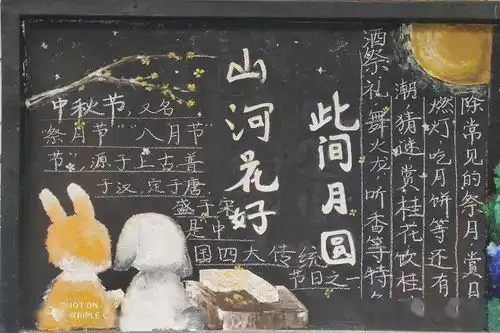 中秋节,又名
“祭月节”“八月节
节”,源于上古,普
于汉,定于唐,
盛于宋
是中
国四大传统
节日之一
山河花好
此间月圆
除常见的祭月、赏
燃灯、吃月饼等还有
潮、猜谜、赏桂花饮桂
酒祭礼、舞火龙、听香等特
SHOT ON
TRIPLE C